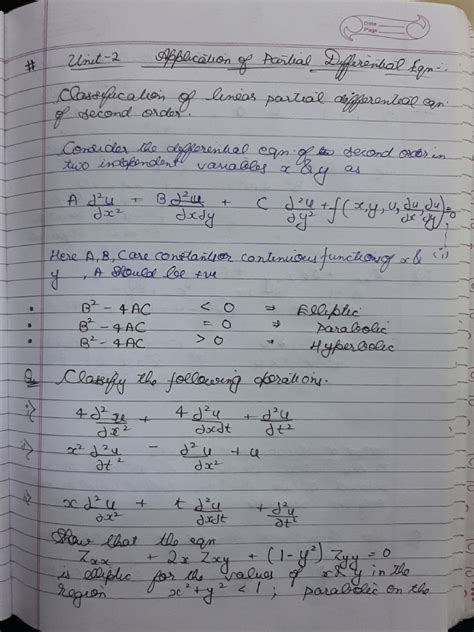 Date
Page
# Unit-2 Application of Partial Differential Eqn:-
Classification of linear partial differential eqn
of second order.
Consider the differential eqn. of second order in
two independent variables x & y as
A ∂²u/∂x² + B ∂²u/∂x∂y + C ∂²u/∂y² + f(x, y, u, ∂u/∂x, ∂u/∂y) = 0
(i)
Here A, B, C are constants or continuous functions of x &
y, A should be +ve
• B² - 4AC < 0 ⇒ Elliptic
• B² - 4AC = 0 ⇒ Parabolic
• B² - 4AC > 0 ⇒ Hyperbolic
Q Classify the following operations.
i) 4∂²u/∂x² + 4∂²u/∂x∂t + ∂²u/∂t²
x² ∂²u/∂t² - ∂²u/∂x² + u
x∂²u/∂x² + t ∂²u/∂x∂t + ∂²u/∂t²
Show that the eqn
Zxx + 2x Zxy + (1-y²) Zyy = 0
is elliptic for the values of x & y in the
region x² + y² < 1; parabolic on the